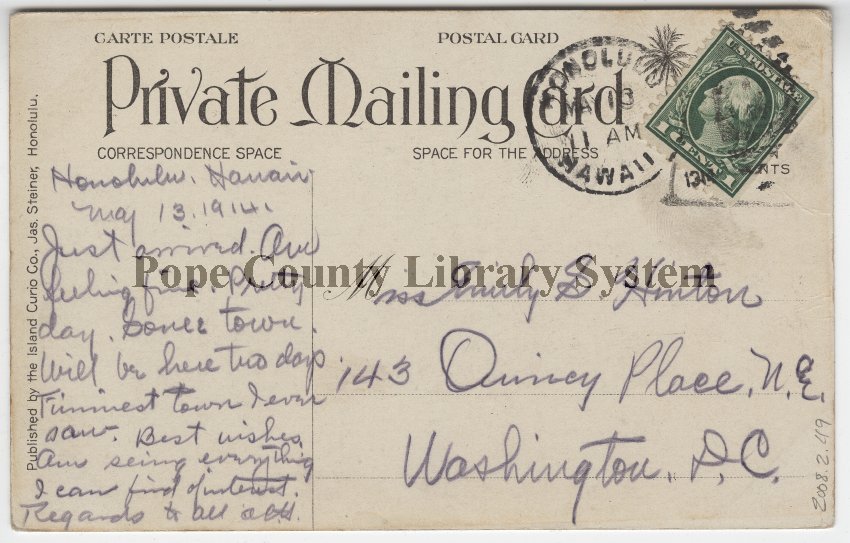 CARTE POSTALE
POSTAL CARD
Private Mailing Card
CORRESPONDENCE SPACE
SPACE FOR THE ADDRESS
HONOLULU
MAY 13
11 AM
HAWAII
1914
U.S. POSTAGE
1 CENT 1
Published by the Island Curio Co., Jas. Steiner, Honolulu.
Honolulu, Hawaii
May 13. 1914.
Just arrived. Am
feeling fine. Pretty
day.
town.
Will be here two days
Funniest town I ever
saw. Best wishes
Am seing everything
I can find of interest.
Regards to all
Miss Emily S. Hinton
143 Quincy Place, N.E.
Washington, D.C.
Pope County Library System
2008.2.49